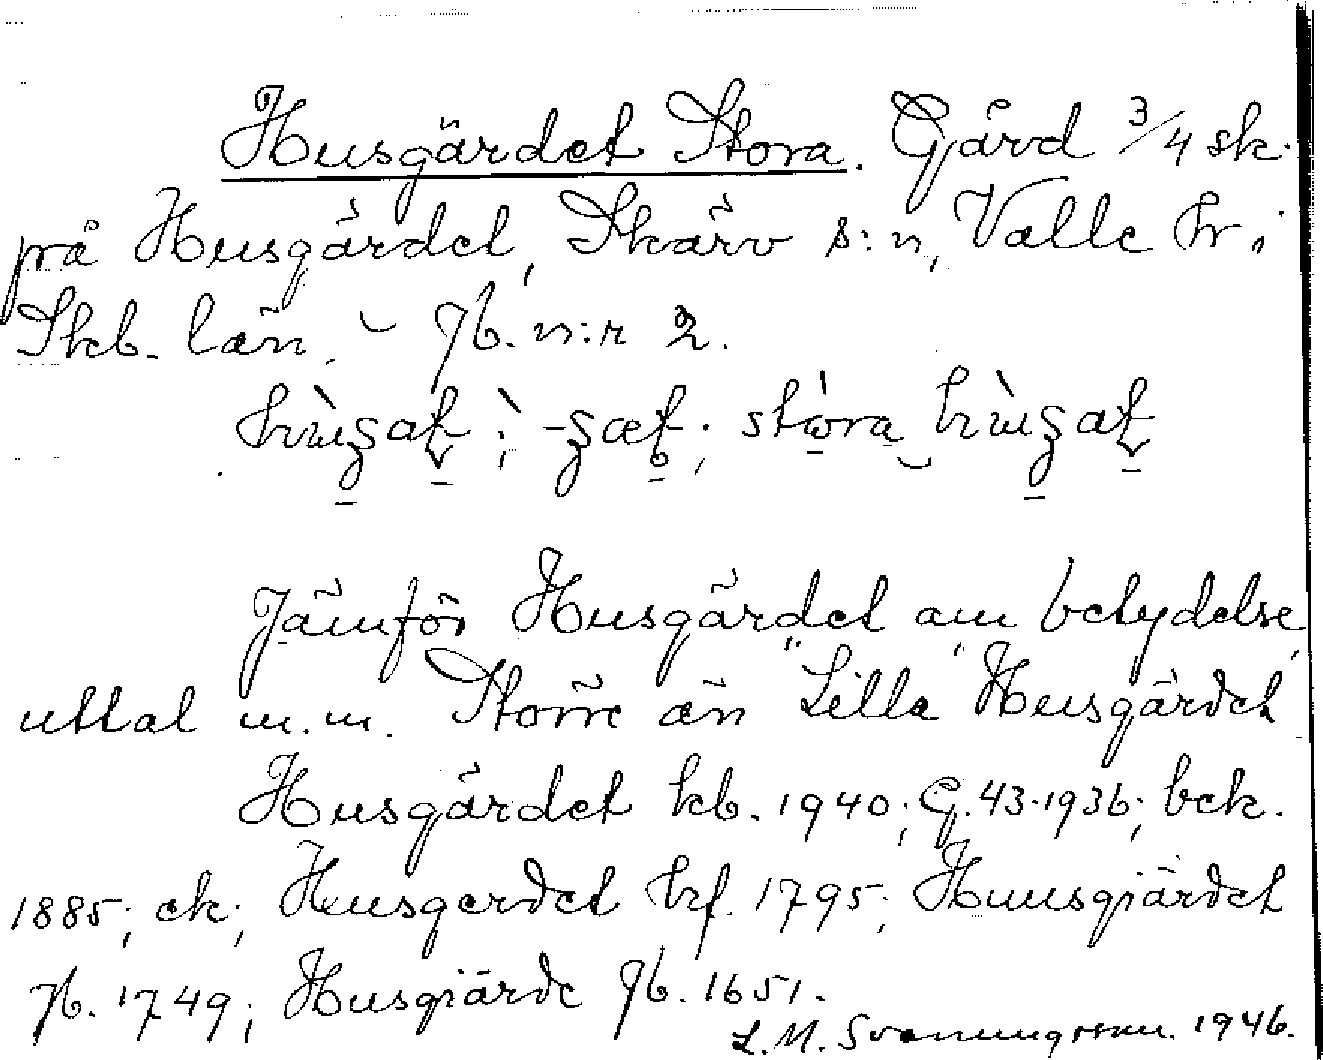 Husgärdet Stora. Gård 3/4 sk.
på Husgärdet, Skärv s:n, Valle hr i
Skb. län. – Jb. n:r 2.
stora
Jämför Husgärdet om betydelse,
uttal m.m. Större än "Lilla" Husgärdet
Husgärdet kb. 1940; G. 43.1936; bek.
1885; ek; Husgerdet hf. 1795; Huusgiärdet
Jb. 1749; Husgiärde Jb. 1651.
L. M. Svanungsson. 1946.